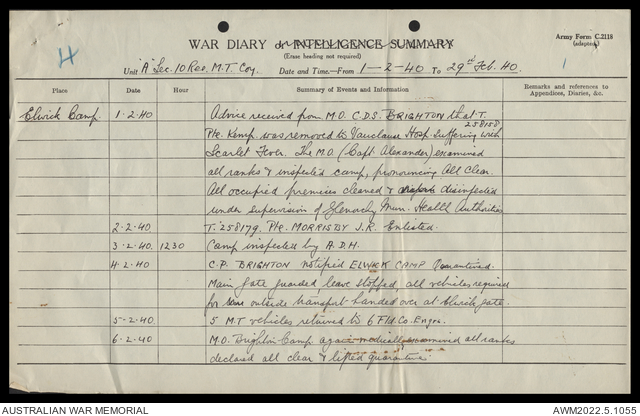 4
WAR DIARY or INTELLIGENCE SUMMARY
(Erase heading not required)
Army Form C.2118
(adapted)
1
Unit "A" Sec. 10 Res. M.T. Coy. Date and Time—From 1-2-40 To 29th Feb. 40.
Place Date Hour Summary of Events and Information Remarks and references to Appendices, Diaries, &c.
Elwick Camp. 1.2.40 Advice received from M.O. C.D.S. BRIGHTON that T.
258158
Pte. Kemp was removed to Vauclause Hosp. suffering with
Scarlet Fever. The M.O. (Capt. Alexander) examined
all ranks & inspected camp, pronouncing All Clear.
All occupied premises cleaned & disinfected
under supervision of Glenorchy Mun. Health Authorities
2.2.40 T.258179. Pte. MORRISBY J.R. Enlisted.
3.2.40. 1230 Camp inspected by A.D.H.
4.2.40 C.P. BRIGHTON notified ELWICK CAMP Quarantined.
Main gate guarded leave stopped, all vehicles required
for outside transport handed over at Elwick gate.
5-2-40 5 M.T vehicles returned to 6 Fld. Co. Engrs.
6.2.40 M.O. Brighton Camp again medically examined all ranks
declared all clear & lifted quarantine
AUSTRALIAN WAR MEMORIAL
AWM2022.5.1055